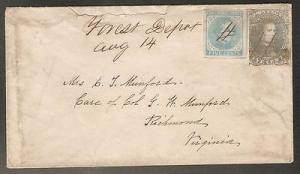 Forest Depot
Aug 14
FIVE CENTS
Mrs C. T. Munford.
Care of Col G. W. Munford,
Richmond
Virginia